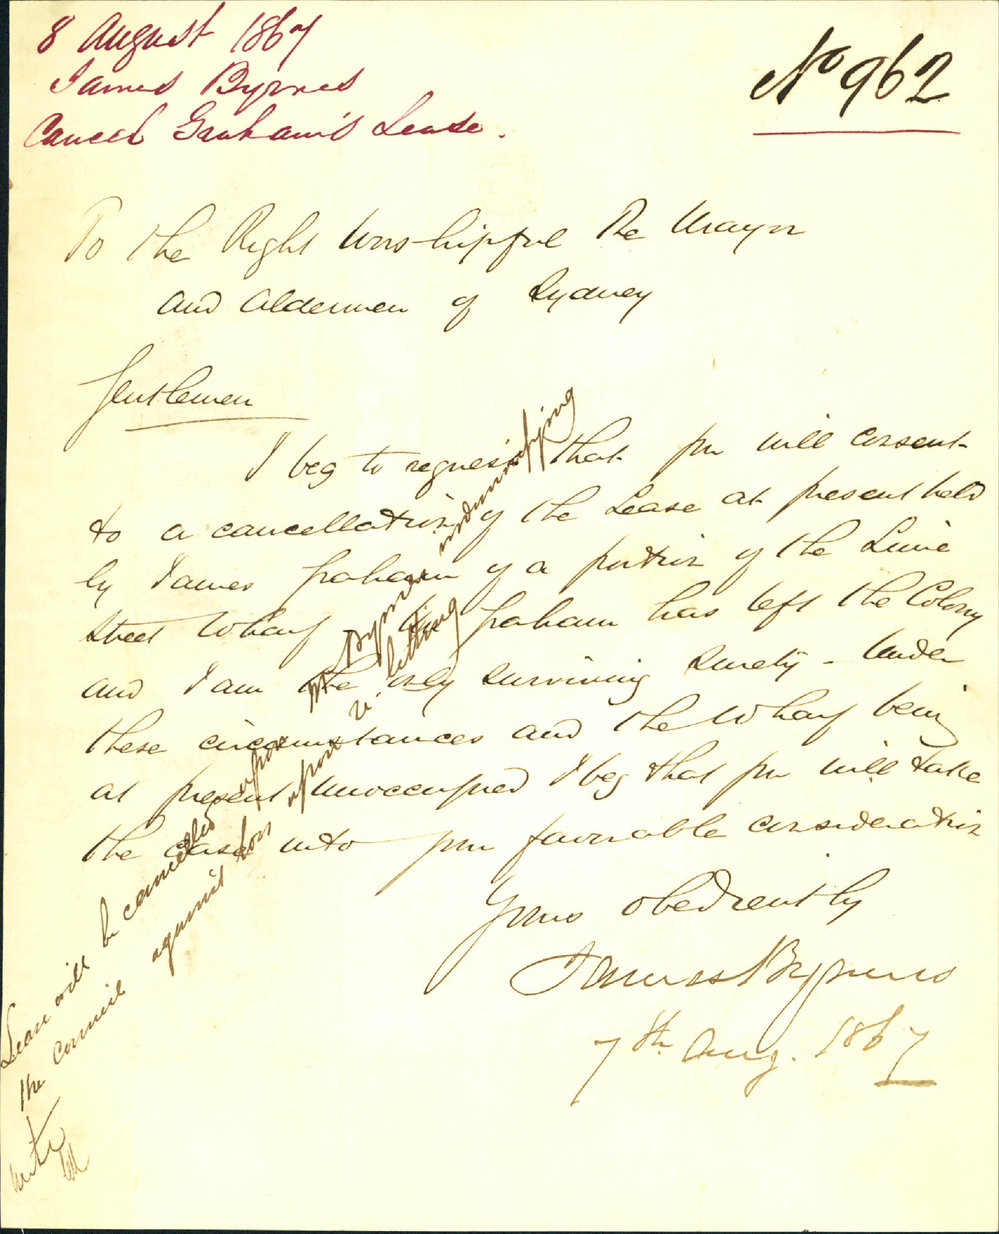 8 August 1867
James Byrnes
Cancel Graham's Lease.
No 962
To the Right Worshipful The Mayor
and Aldermen of Sydney
Gentlemen
I beg to request that you will consent
to a cancellation of the Lease at present held
by James Graham of a portion of the Lime
Street Wharf Graham has left the Colony
and I am the only surviving surety - Under
these circumstances and the Wharf being
at present unoccupied I beg that you will take
the case into your favorable consideration
Yours obediently
James Byrnes
7th Aug. 1867
Lease will be cancelled upon Mr Byrnes indemnifying
the council against loss upon re-letting